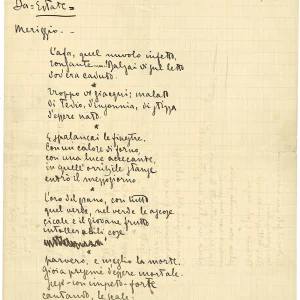 Da = Estate =
Meriggio -
L'afa, quel nuvolo infetto,
ronzante.... Balzai di sul letto
dov'era caduto.
*
Troppo vi giacqui; malato
di tedio, d'insonnia, di stizza
d'essere nato.
*
E spalancai le finestre.
Con un calore di forno,
con una luce accecante,
in quell'orribile stanza
entrò il mezzogiorno.
*
L'oro del grano, con tutto
quel verde, nel verde le ascose
cicale e il giovane frutto
intollerabili cose
*
parvero, e meglio la morte.
gioia d'essere mortale.
con impeto forte
cantando, le scale: